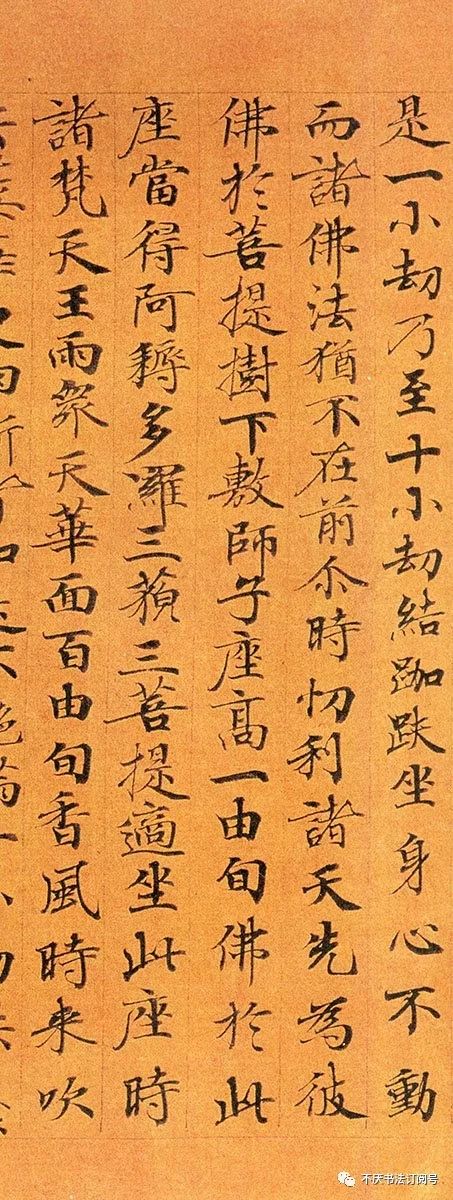 是一小劫乃至十小劫結跏趺坐身心不動
而諸佛法猶不在前尒時忉利諸天先為彼
佛於菩提樹下敷師子座高一由旬佛於此
座當得阿耨多羅三藐三菩提適坐此座時
諸梵天王雨衆天華面百由旬香風時来吹
不厌书法订阅号